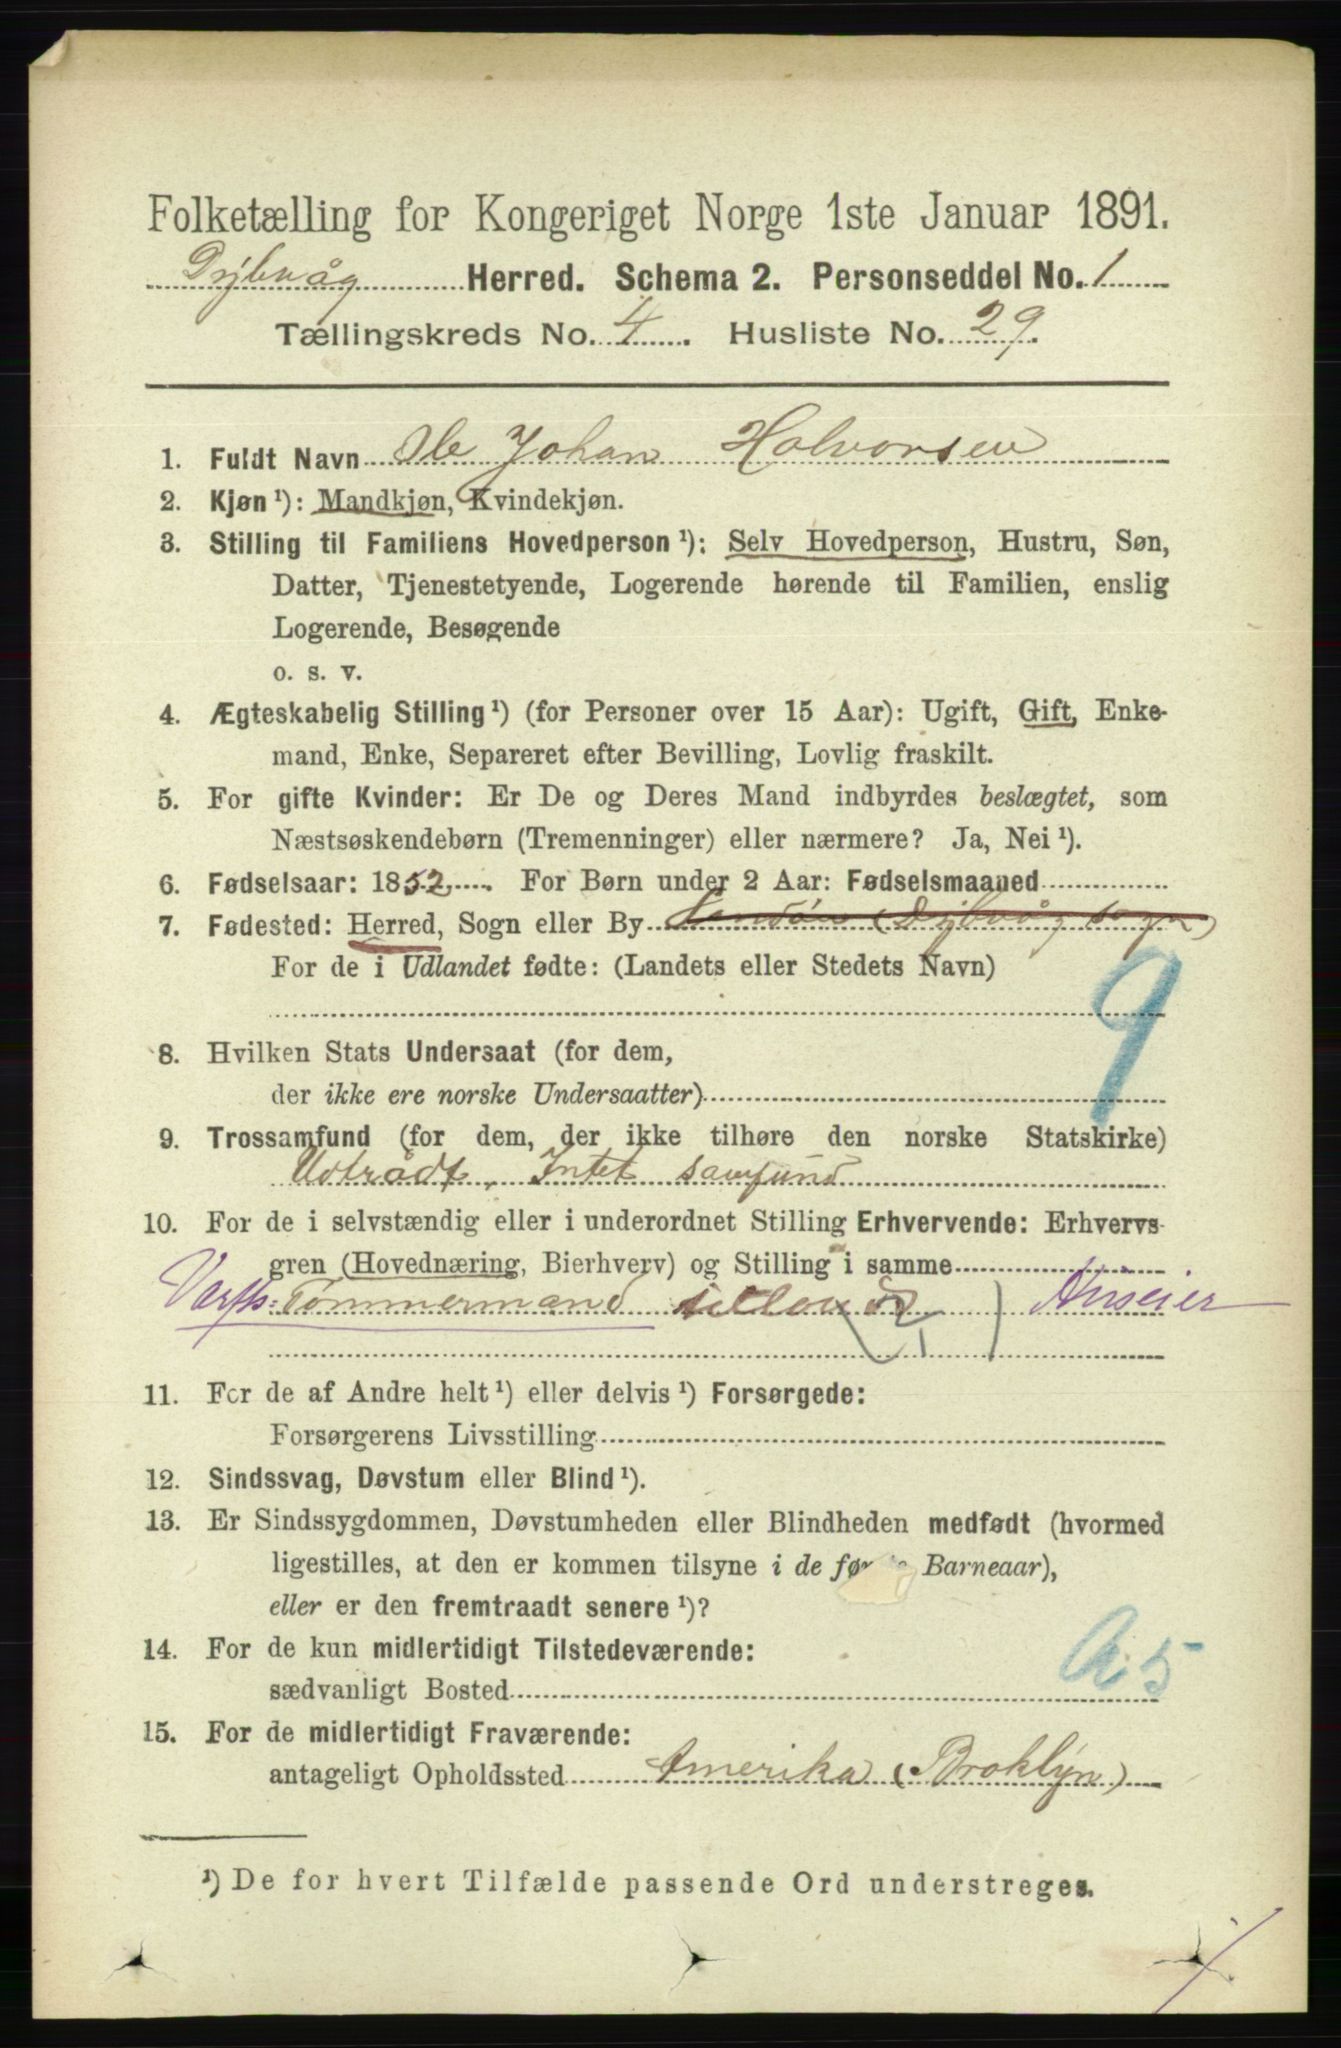 Folketælling for Kongeriget Norge 1ste Januar 1891.
Dybvåg Herred. Schema 2. Personseddel No. 1
Tællingskreds No. 4. Husliste No. 29.
1. Fuldt Navn Ole Johan Halvorsen
2. Kjøn ¹): Mandkjøn, Kvindekjøn.
3. Stilling til Familiens Hovedperson ¹): Selv Hovedperson, Hustru, Søn,
Datter, Tjenestetyende, Logerende hørende til Familien, enslig
Logerende, Besøgende
o. s. v.
4. Ægteskabelig Stilling ¹) (for Personer over 15 Aar): Ugift, Gift, Enke-
mand, Enke, Separeret efter Bevilling, Lovlig fraskilt.
5. For gifte Kvinder: Er De og Deres Mand indbyrdes beslægtet, som
Næstsøskendebørn (Tremenninger) eller nærmere? Ja, Nei ¹).
6. Fødselsaar: 1852. For Børn under 2 Aar: Fødselsmaaned
7. Fødested: Herred, Sogn eller By Sandøen (Dybvåg sogn)
For de i Udlandet fødte: (Landets eller Stedets Navn)
9
8. Hvilken Stats Undersaat (for dem,
der ikke ere norske Undersaatter)
9. Trossamfund (for dem, der ikke tilhøre den norske Statskirke)
Udtrådt, Intet samfund
10. For de i selvstændig eller i underordnet Stilling Erhvervende: Erhvervs-
gren (Hovednæring, Bierhverv) og Stilling i samme
Tømmermand
11. For de af Andre helt ¹) eller delvis ¹) Forsørgede:
Forsørgerens Livsstilling
12. Sindssvag, Døvstum eller Blind ¹).
13. Er Sindssygdommen, Døvstumheden eller Blindheden medfødt (hvormed
ligestilles, at den er kommen tilsyne i de Barneaar),
eller er den fremtraadt senere ¹)?
14. For de kun midlertidigt Tilstedeværende:
sædvanligt Bosted
A. 5
15. For de midlertidigt Fraværende:
antageligt Opholdssted Amerika (Broklyn)
¹) De for hvert Tilfælde passende Ord understreges.